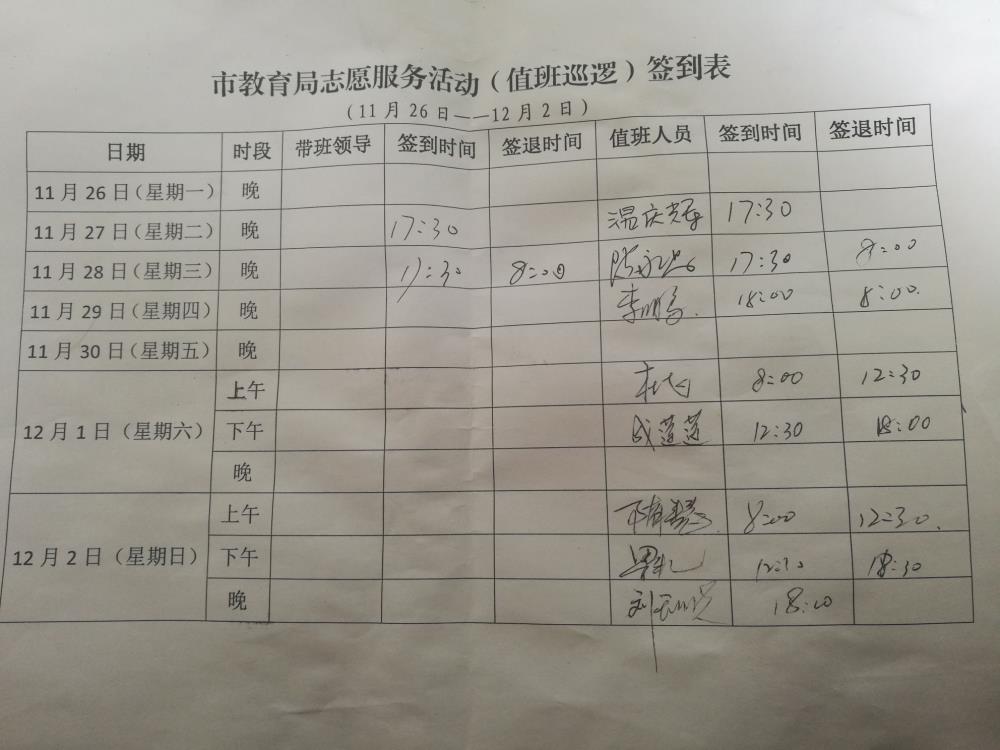 市教育局志愿服务活动（值班巡逻）签到表
（11月26日——12月2日）
日期 时段 带班领导 签到时间 签退时间 值班人员 签到时间 签退时间
11月26日（星期一） 晚
11月27日（星期二） 晚 17:30 温庆 17:30
11月28日（星期三） 晚 17:30 8:00 陈永 17:30 8:00
11月29日（星期四） 晚 李 18:00 8:00
11月30日（星期五） 晚
12月1日（星期六） 上午 8:00 12:30
下午 成莲莲 12:30 18:00
晚
12月2日（星期日） 上午 8:00 12:30
下午 12:30 18:30
晚 刘 18:00